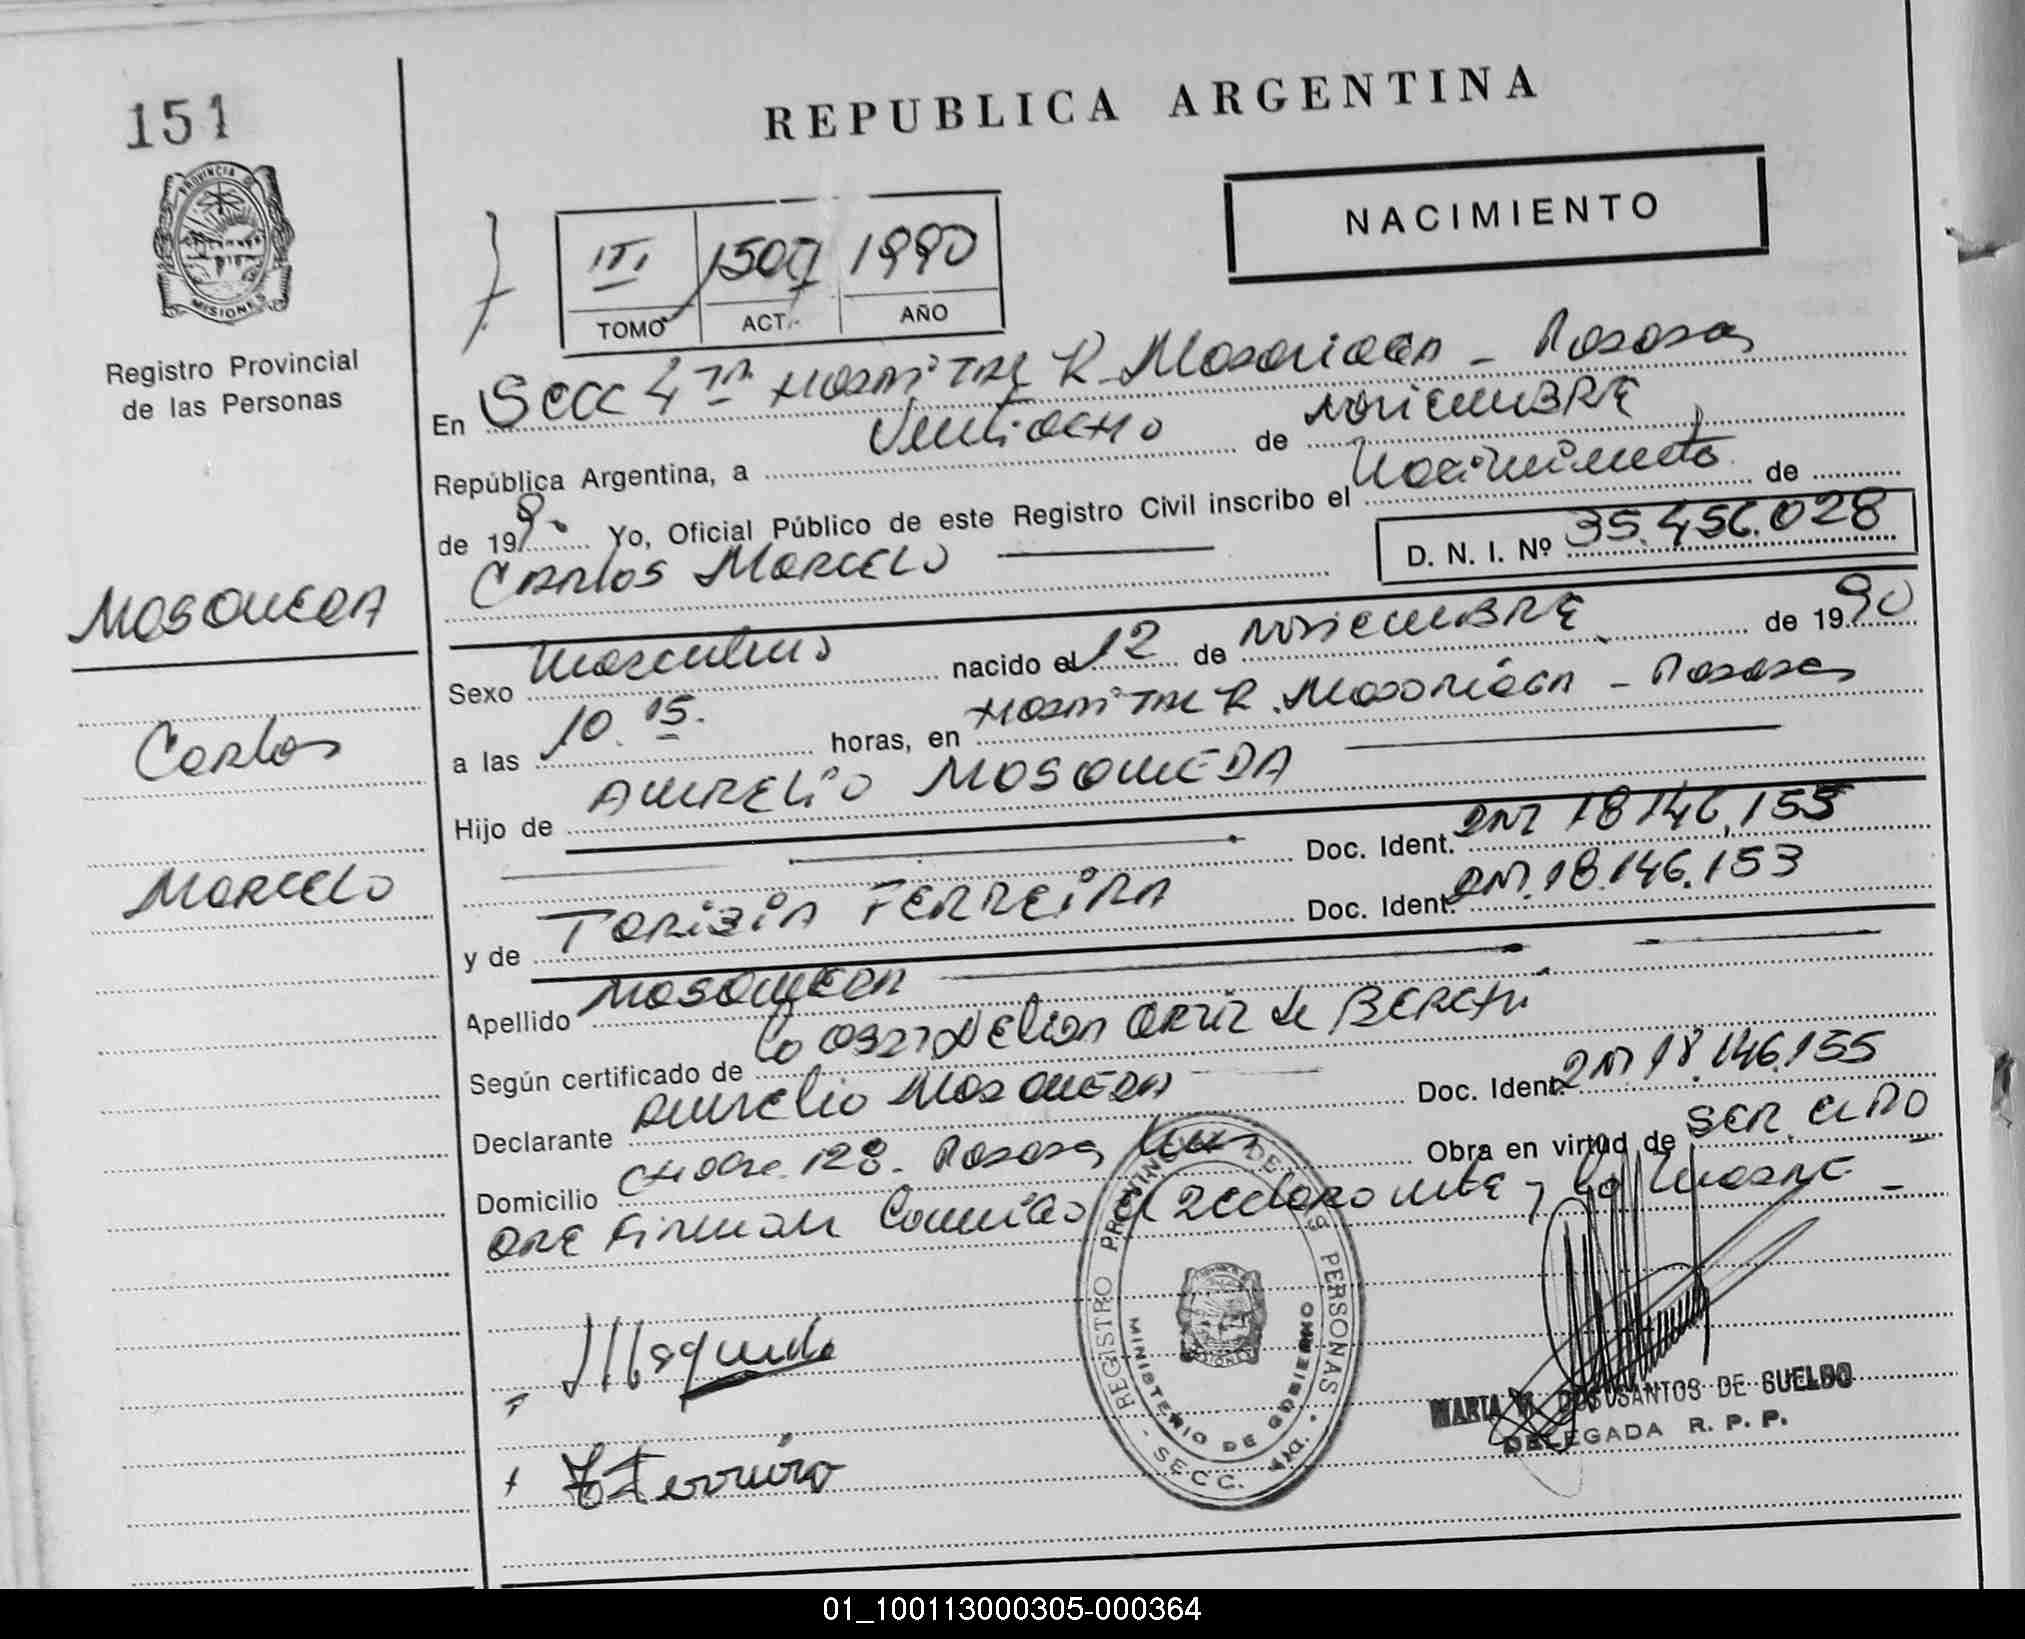 151
PROVINCIA DE
MISIONES
Registro Provincial
de las Personas
REPUBLICA ARGENTINA
NACIMIENTO
III 1507 1990
TOMO ACT. AÑO
En Secc 4ta Hospital R. Madariaga - Posadas
República Argentina, a Ventiocho de Noviembre
de 1990 Yo, Oficial Público de este Registro Civil inscribo el Nacimiento de
Carlos Marcelo
D. N. I. Nº 35.456.028
MOSQUEDA
Carlos
Marcelo
Sexo Masculino nacido el 12 de Noviembre de 1990
a las 10.15. horas, en Hospital R. Madariaga - Posadas
Hijo de AURELIO MOSQUEDA
Doc. Ident. DNI 18.146.155
y de TORIBIA FERREIRA Doc. Ident. DNI. 18.146.153
Apellido MOSQUEDA
Según certificado de la Obst Nelida Ortiz de
Declarante Aurelio Mosqueda Doc. Ident. DNI 18.146.155
Domicilio 128. Posadas Obra en virtud de SER EL PADRE
QUE Firman Conmigo el Declarante y la Madre -
Mosqueda
T Ferreira
REGISTRO PROVINCIAL DE LAS PERSONAS
MINISTERIO DE GOBIERNO
MISIONES
- SECC. 4ta. -
MARIA DOS SANTOS DE SUELDO
DELEGADA R. P. P.
01_100113000305-000364